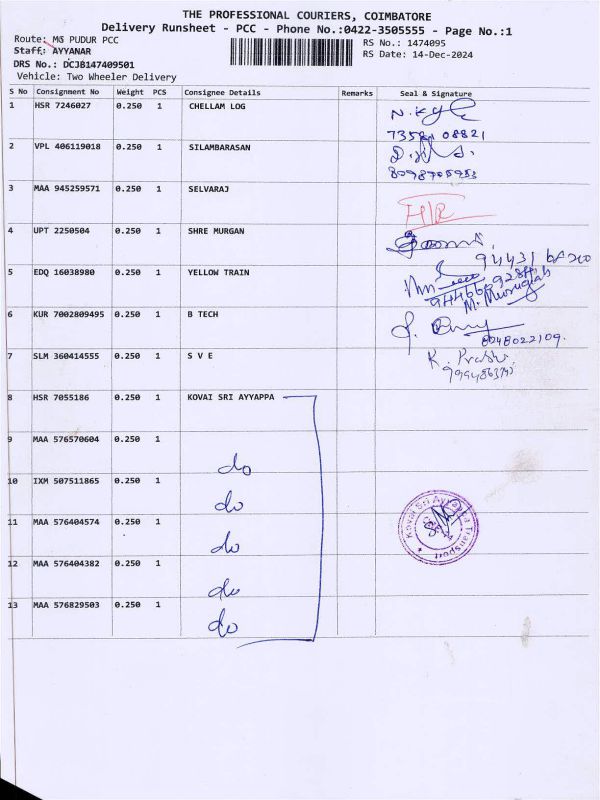 THE PROFESSIONAL COURIERS, COIMBATORE
Delivery Runsheet - PCC - Phone No.:0422-3505555 - Page No.:1
Route: MS PUDUR PCC
RS No.: 1474095
Staff: AYYANAR
RS Date: 14-Dec-2024
DRS No.: DCJB147409501
Vehicle: Two Wheeler Delivery
S No Consignment No Weight PCS Consignee Details Remarks Seal & Signature
1 HSR 7246027 0.250 1 CHELLAM LOG
2 VPL 406119018 0.250 1 SILAMBARASAN
8098705953
3 MAA 945259571 0.250 1 SELVARAJ
H/R
4 UPT 2250504 0.250 1 SHRE MURGAN
5 EDQ 16038980 0.250 1 YELLOW TRAIN
M. Murugiah
6 KUR 7002809495 0.250 1 B TECH
8248022109.
7 SLM 360414555 0.250 1 S V E
8 HSR 7055186 0.250 1 KOVAI SRI AYYAPPA
9 MAA 576570604 0.250 1
do
10 IXM 507511865 0.250 1
do
11 MAA 576404574 0.250 1
do
12 MAA 576404382 0.250 1
do
13 MAA 576829503 0.250 1
do
Kovai Sri Ayyappa Transport